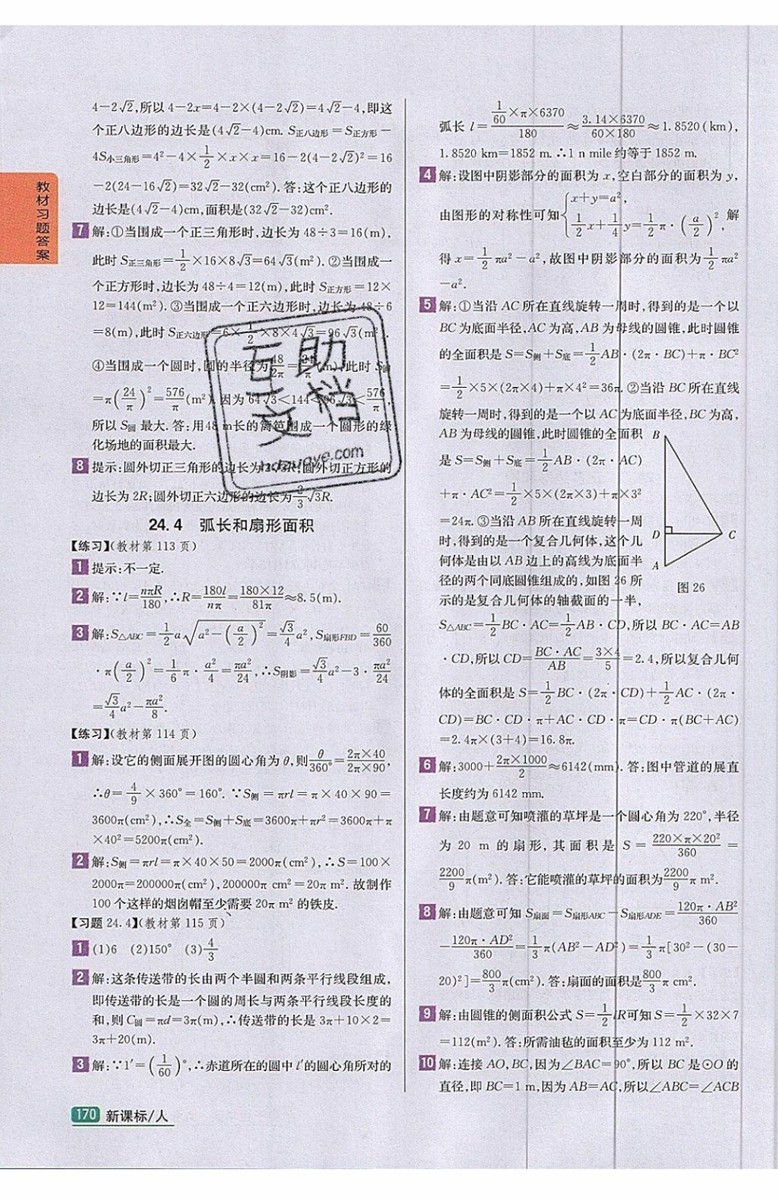 教材习题答案
4-2√2,所以 4-2x=4-2×(4-2√2)=4√2-4,即这
个正八边形的边长是(4√2-4)cm. S正八边形=S正方形-
4S小三角形=4²-4×1/2×x×x=16-2(4-2√2)²=16
-2(24-16√2)=32√2-32(cm²).答:这个正八边形的
边长是(4√2-4)cm,面积是(32√2-32)cm².
7 解:①当围成一个正三角形时,边长为 48÷3=16(m),
此时 S正三角形=1/2×16×8√3=64√3(m²).②当围成一
个正方形时,边长为 48÷4=12(m),此时 S正方形=12×
12=144(m²).③当围成一个正六边形时,边长为 48÷6
=8(m),此时 S正六边形=6×1/2×8×4√3=96√3(m²).
④当围成一个圆时,圆的半径为48/2π=24/π(m),此时 S圆
=π(24/π)²=576/π(m²).因为 64√3<144<96√3<576/π,
所以 S圆 最大.答:用48 m长的篱笆围成一个圆形的绿
化场地的面积最大.
8 提示:圆外切正三角形的边长为2√3R;圆外切正方形的
边长为 2R;圆外切正六边形的边长为2/3√3R.
24.4 弧长和扇形面积
【练习】(教材第 113 页)
1 提示:不一定.
2 解:∵l=nπR/180,∴R=180l/nπ=180×12/81π≈8.5(m).
3 解:S△ABC=1/2a√(a²-(a/2)²)=√3/4a²,S扇形FBD=60/360
·π(a/2)²=1/6π·a²/4=πa²/24,∴S阴影=√3/4a²-3·πa²/24
=√3/4a²-πa²/8.
【练习】(教材第 114 页)
1 解:设它的侧面展开图的圆心角为 θ,则θ/360°=2π×40/2π×90,
∴θ=4/9×360°=160°. ∵S侧=πrl=π×40×90=
3600π(cm²),∴S全=S侧+S底=3600π+πr²=3600π+π
×40²=5200π(cm²).
2 解:S侧=πrl=π×40×50=2000π(cm²),∴S=100×
2000π=200000π(cm²),200000π cm²=20π m². 故制作
100 个这样的烟囱帽至少需要 20π m² 的铁皮.
【习题 24.4】(教材第 115 页)
1 (1)6 (2)150° (3)4/3
2 解:这条传送带的长由两个半圆和两条平行线段组成,
即传送带的长是一个圆的周长与两条平行线段长度的
和,则 C圆=πd=3π(m),∴传送带的长是 3π+10×2=
3π+20(m).
3 解:∵1′=(1/60)°,∴赤道所在的圆中 1′的圆心角所对的
弧长 l=(1/60×π×6370)/180≈3.14×6370/60×180≈1.8520(km),
1.8520 km=1852 m. ∴1 n mile 约等于 1852 m.
4 解:设图中阴影部分的面积为 x,空白部分的面积为 y,
由图形的对称性可知{x+y=a², 1/2x+1/4y=1/2π·(a/2)², 解
得 x=1/2πa²-a²,故图中阴影部分的面积为1/2πa²
-a².
5 解:①当沿 AC 所在直线旋转一周时,得到的是一个以
BC 为底面半径,AC 为高,AB 为母线的圆锥,此时圆锥
的全面积是 S=S侧+S底=1/2AB·(2π·BC)+π·BC²
=1/2×5×(2π×4)+π×4²=36π.②当沿 BC 所在直线
旋转一周时,得到的是一个以 AC 为底面半径,BC 为高,
AB 为母线的圆锥,此时圆锥的全面积
是 S=S侧+S底=1/2AB·(2π·AC)
+π·AC²=1/2×5×(2π×3)+π×3²
=24π.③当沿 AB 所在直线旋转一周
时,得到的是一个复合几何体,这个几
何体是由以 AB 边上的高线为底面半
径的两个同底圆锥组成的,如图 26 所
示的是复合几何体的轴截面的一半,
B
D
C
A
图 26
S△ABC=1/2BC·AC=1/2AB·CD,所以 BC·AC=AB
·CD,所以 CD=BC·AC/AB=3×4/5=2.4,所以复合几何
体的全面积是 S=1/2BC·(2π·CD)+1/2AC·(2π·
CD)=BC·CD·π+AC·CD·π=CD·π(BC+AC)
=2.4π×(3+4)=16.8π.
6 解:3000+2π×1000/2≈6142(mm).答:图中管道的展直
长度约为 6142 mm.
7 解:由题意可知喷灌的草坪是一个圆心角为 220°,半径
为 20 m 的扇形,其面积是 S=220×π×20²/360=
2200/9π(m²).答:它能喷灌的草坪的面积为2200/9π m².
8 解:由题意可知 S扇面=S扇形ABC-S扇形ADE=120π·AB²/360
-120π·AD²/360=1/3π(AB²-AD²)=1/3π[30²-(30-
20)²]=800/3π(cm²).答:扇面的面积是800/3π cm².
9 解:由圆锥的侧面积公式 S=1/2lR可知 S=1/2×32×7
=112(m²).答:所需油毡的面积至少为 112 m².
10 解:连接 AO,BC,因为∠BAC=90°,所以 BC 是⊙O 的
直径,即 BC=1 m,因为 AB=AC,所以∠ABC=∠ACB
互助文档
hdzuoye.com
170 新课标/人